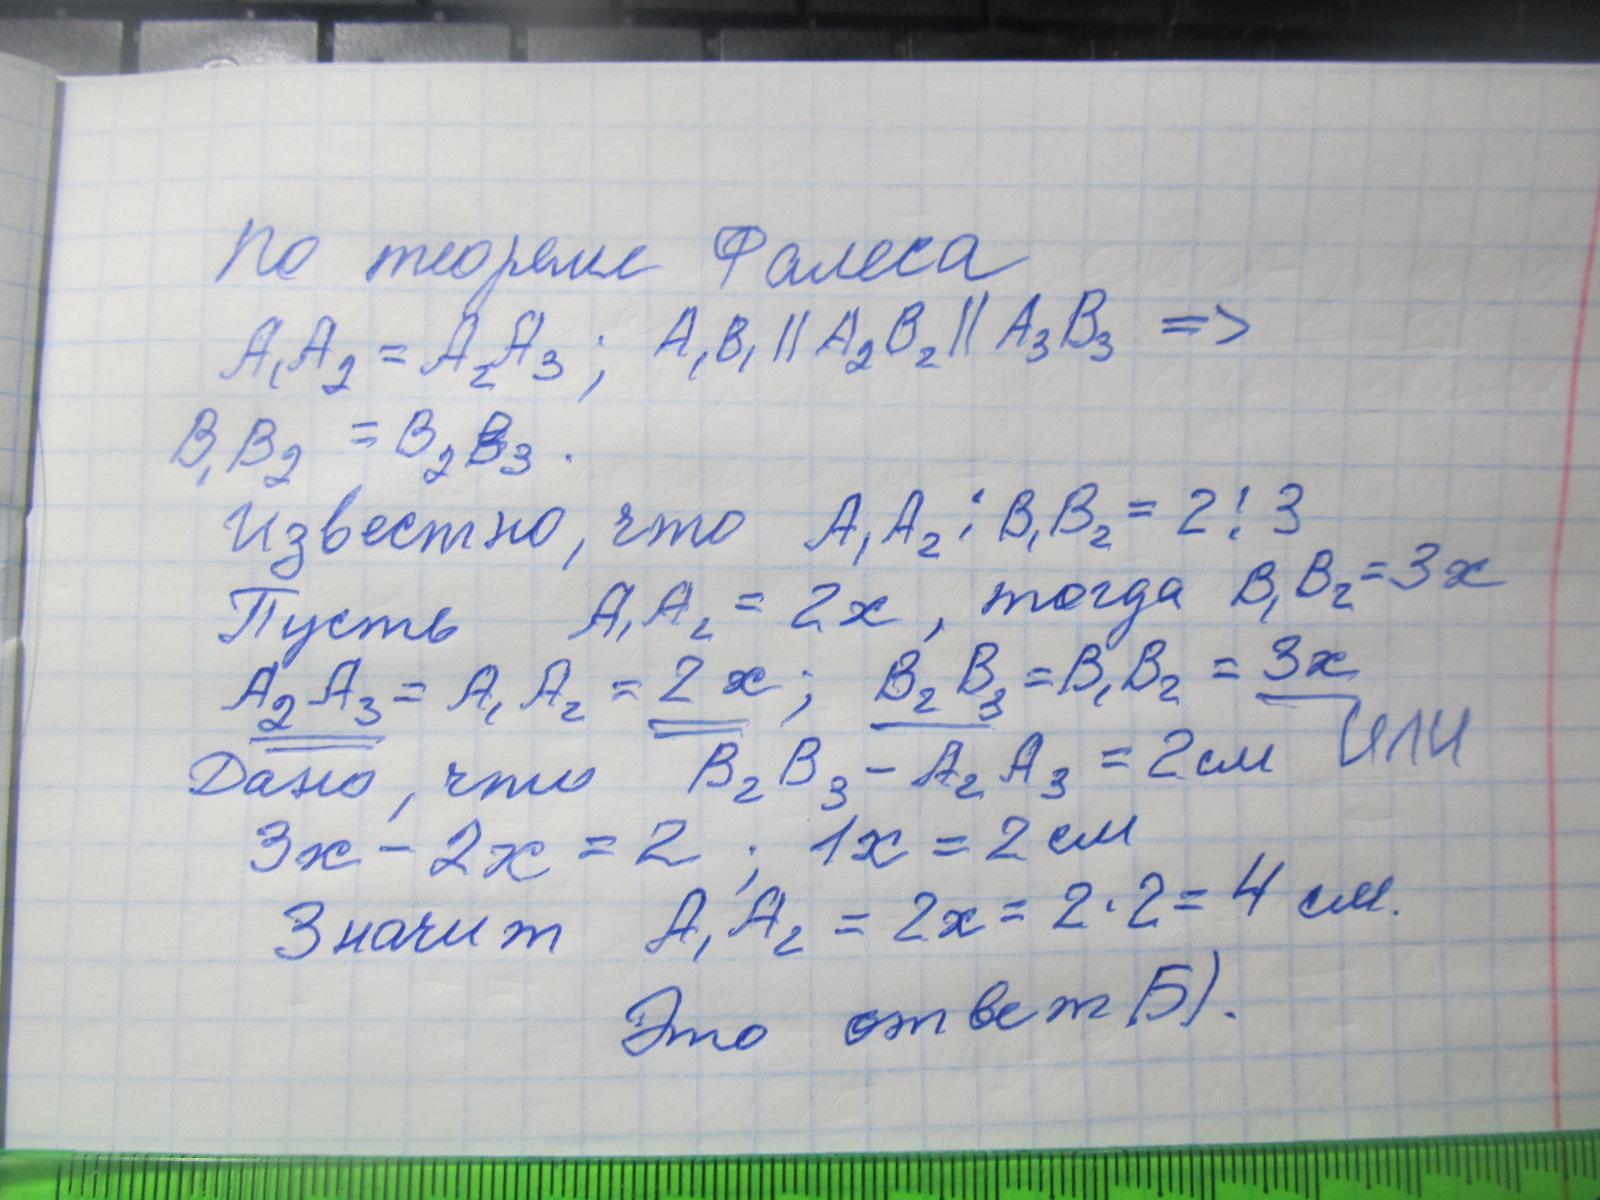 По теореме Фалеса
A₁A₂ = A₂A₃; A₁B₁ || A₂B₂ || A₃B₃ =>
B₁B₂ = B₂B₃.
Известно, что A₁A₂ : B₁B₂ = 2:3
Пусть A₁A₂ = 2x, тогда B₁B₂ = 3x
A₂A₃ = A₁A₂ = 2x; B₂B₃ = B₁B₂ = 3x
Дано, что B₂B₃ - A₂A₃ = 2см или
3x - 2x = 2; 1x = 2см
Значит A₁A₂ = 2x = 2·2 = 4 см.
Это ответ Б).